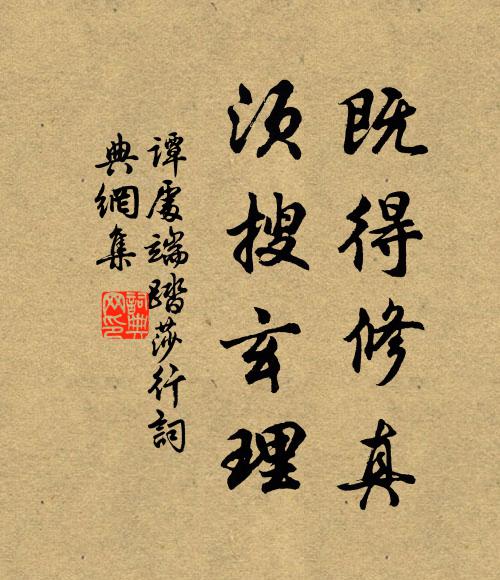 既得修真
須搜玄理
譚處端踏莎行詞
典網集
詞典網印